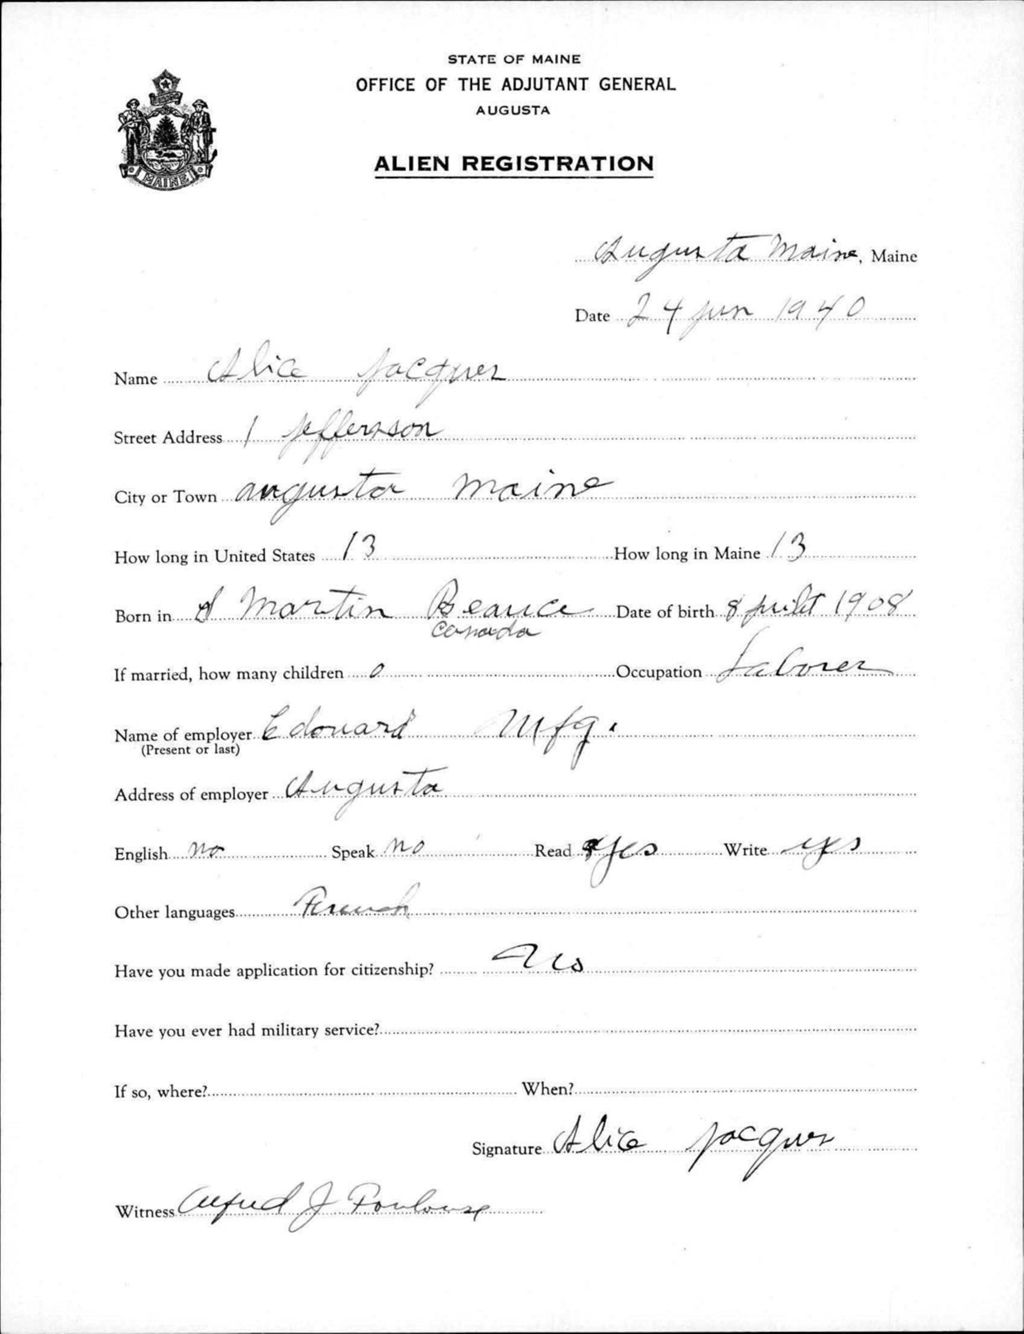 STATE OF MAINE
OFFICE OF THE ADJUTANT GENERAL
AUGUSTA
ALIEN REGISTRATION
MAINE
Augusta Maine, Maine
Date 24 jun 1940
Name Alice Jacques
Street Address 1 Jefferson
City or Town augusta Maine
How long in United States 13 How long in Maine 13
Born in St Martin Beauce Canada Date of birth 8 juilet 1908
If married, how many children 0 Occupation Laborer
Name of employer Edouard Mfg.
(Present or last)
Address of employer Augusta
English no Speak no Read yes Write yes
Other languages French
Have you made application for citizenship? No
Have you ever had military service?
If so, where? When?
Signature Alice Jacques
Witness Alfred J Toulouse